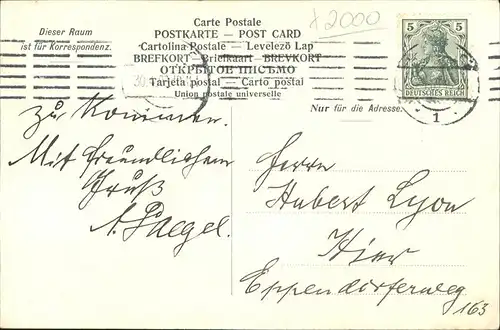 Carte Postale
POSTKARTE — POST CARD
Cartolina Postale — Levelező Lap
BREFKORT — Briefkaart — BREVKORT
ОТКРЫТОЕ ПИСЬМО
Tarjeta postal — Carto postal
Union postale universelle
Dieser Raum
ist für Korrespondenz.
Nur für die Adresse.
2000
5 5
DEUTSCHES REICH
1
zu kommen.
Mit freundlichem
Gruß
A. Paegel.
Herrn
Hubert Lyon
Hier
Eppendorferweg
163